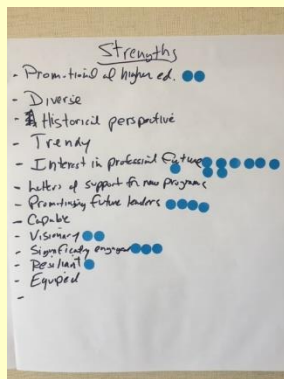 Strengths
- Promotional of higher ed.
- Diverse
- Historical perspective
- Trendy
- Interest in professional future
- Letters of support for new programs
- Promising future leaders
- Capable
- Visionary
- Significantly engaged
- Resiliant
- Equpied
-